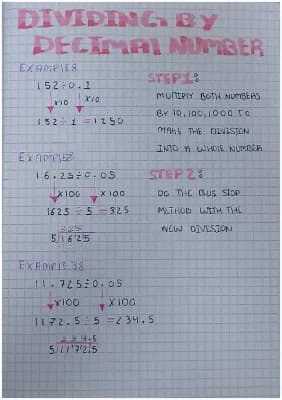 DIVIDING BY
DECIMAL NUMBER
EXAMPLE 8
152÷0.1
x10 x10
152÷1=1250
EXAMPLE 8
16.25÷0.05
x100 x100
1625÷5=325
325
5|1625
EXAMPLE 38
11.725÷0.05
x100 x100
1172.5÷5=234.5
234.5
5|1172.5
STEP1:
MULTIPLY BOTH NUMBERS
BY 10,100,1000 TO
MAKE THE DIVISION
INTO A WHOLE NUMBER
STEP2:
DO THE BUS STOP
METHOD WITH THE
NEW DIVISION